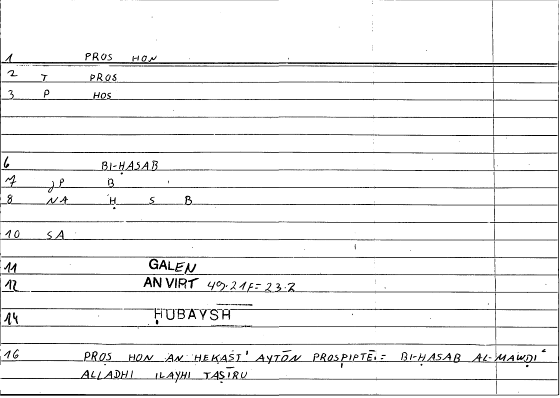 1 PROS HON
2 T PROS
3 P HOS
6 BI-ḤASAB
7 JP B
8 NA Ḥ S B
10 SA
11 GALEN
12 AN VIRT 49.21F= 23.2
14 ḤUBAYSH
16 PROS HON AN HEKAST' AYTŌN PROSPIPTĒI= BI-ḤASAB AL-MAWḌIʿ
ALLADHI ILAYHI TAṢĪRU